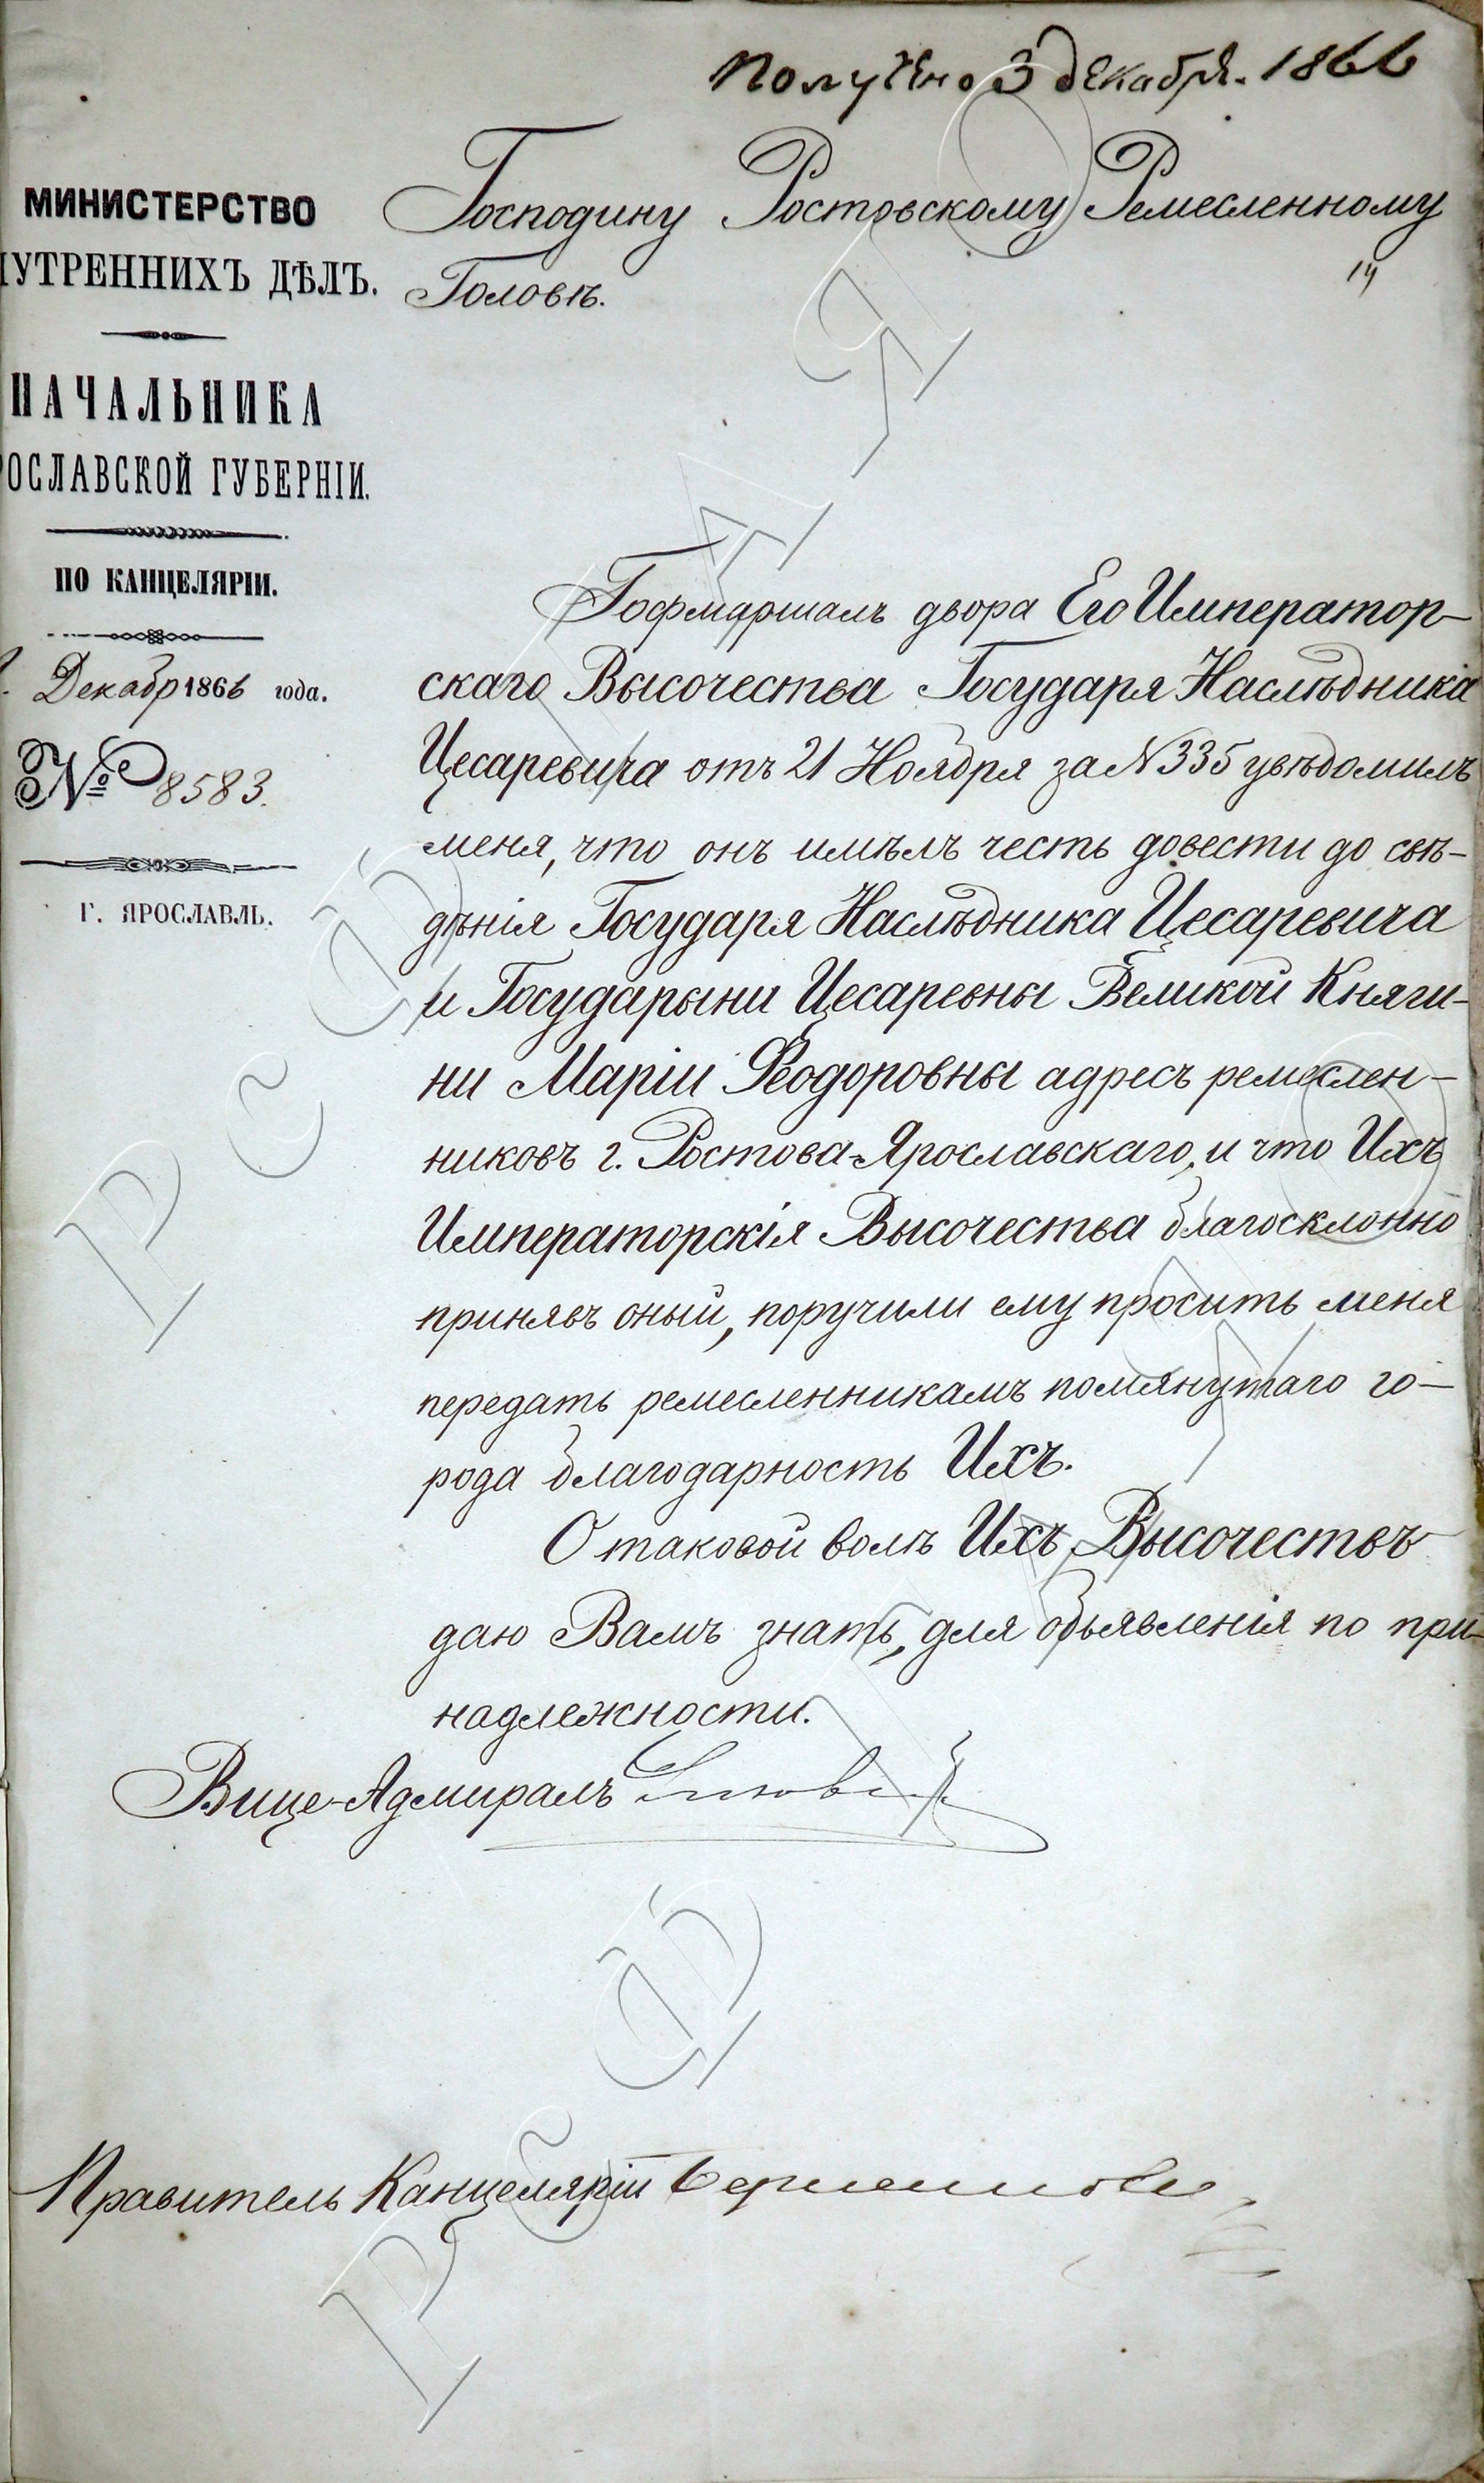 Получено 3 декабря. 1866
МИНИСТЕРСТВО
НУТРЕННИХЪ ДѢЛЪ.
НАЧАЛЬНИКА
РОСЛАВСКОЙ ГУБЕРНІИ.
ПО КАНЦЕЛЯРІИ.
Декабр 1866 года.
№ 8583.
Г. ЯРОСЛАВЛЬ.
Господину Ростовскому Ремесленному
Головѣ.
14
Гофмаршалъ двора Его Император-
скаго Высочества Государя Наслѣдника
Цесаревича отъ 21 Ноября за N 335 увѣдомилъ
меня, что онъ имѣлъ честь довести до свѣ-
дѣнія Государя Наслѣдника Цесаревича
и Государыни Цесаревны Великой Княги-
ни Маріи Ѳеодоровны адресъ ремеслен-
никовъ г. Ростова-Ярославскаго, и что Ихъ
Императорскія Высочества благосклонно
принявъ оный, поручили ему просить меня
передать ремесленникамъ помянутаго го-
рода благодарность Ихъ.
О таковой волѣ Ихъ Высочествъ
даю Вамъ знать, для объявленія по при-
надлежности.
Вице-Адмиралъ
Правитель Канцеляріи
РсФ ГАЯО
РсФ ГАЯО